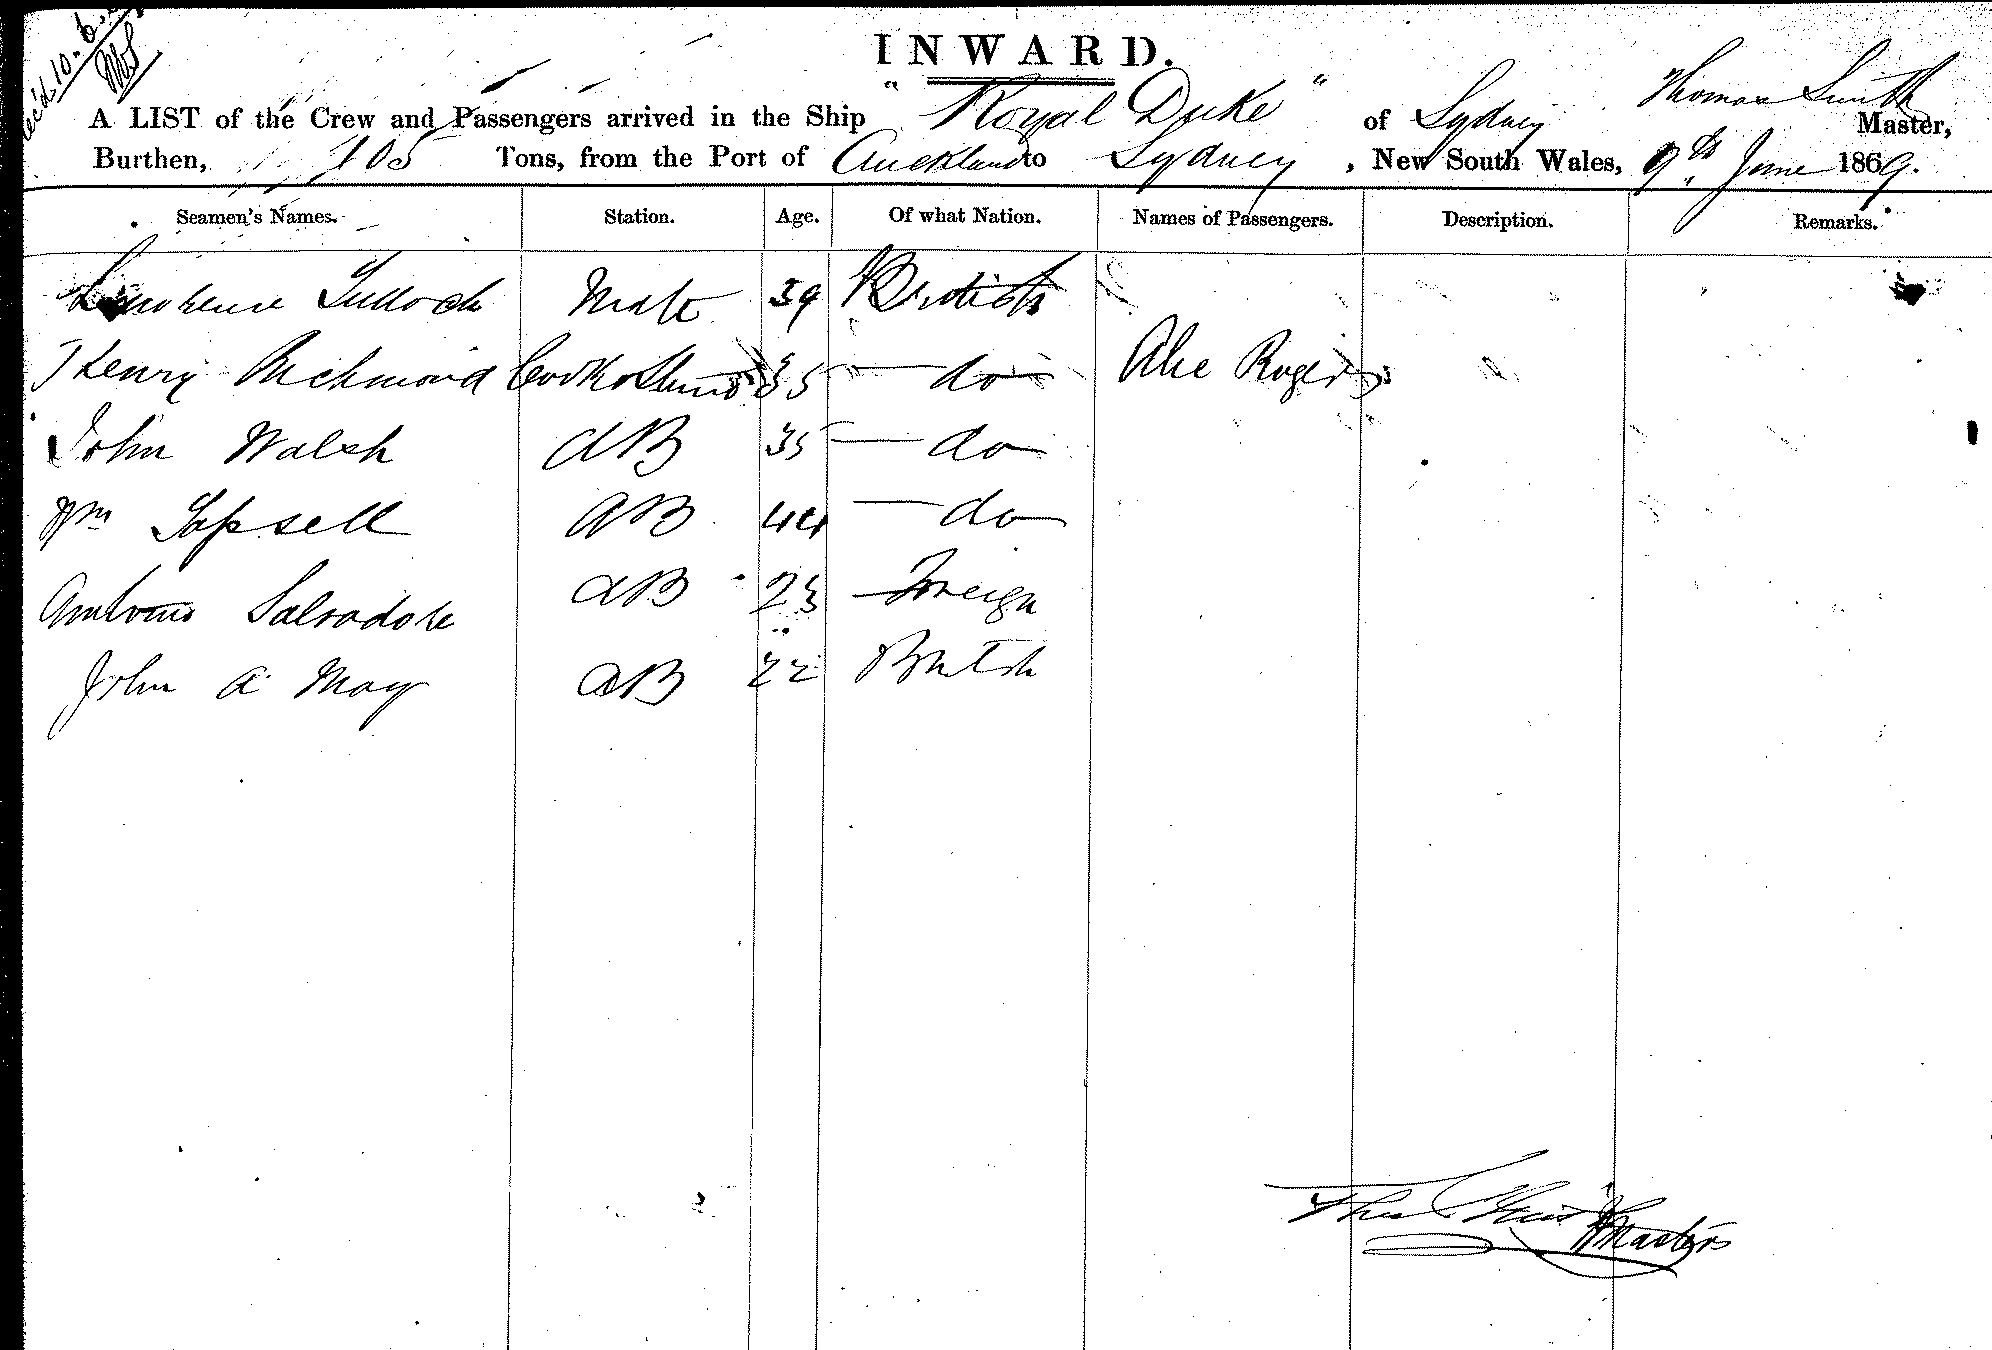 Rec'd. 10. 6.
INWARD.
A LIST of the Crew and Passengers arrived in the Ship "Royal Duke" of Sydney Thomas Smith Master,
Burthen, 105 Tons, from the Port of Auckland to Sydney, New South Wales, 9th June 1869.
Seamen's Names. Station. Age. Of what Nation. Names of Passengers. Description. Remarks.
Lawrence Tulloch Mate 39 British
Henry Richmond Cook & Stewd 35 — do Alec Rogers
John Walsh AB 35 — do
Wm Topsell AB 44 — do
Antonio Salvadore AB 23 Foreign
John A May AB 22 British
Thos Smith Master